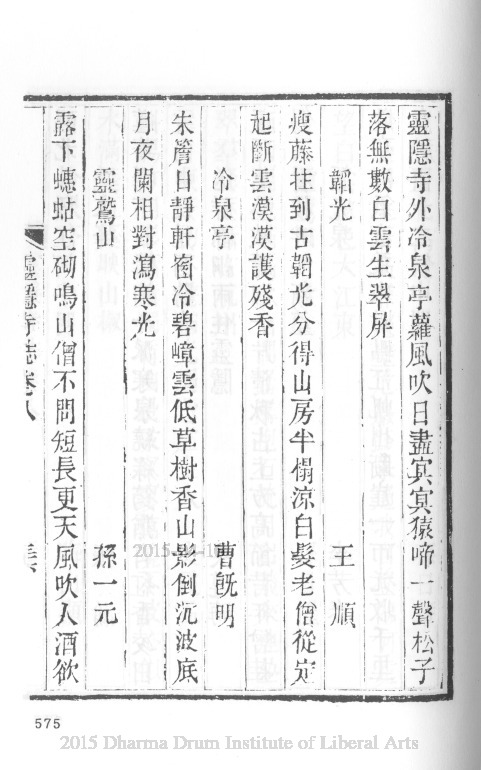 靈隱寺外冷泉亭蘿風吹日盡㝠㝠猿啼一聲松子
落無數白雲生翠屏
韜光 王順
瘦藤拄到古韜光分得山房半榻涼白髮老僧從定
起斷雲漠漠護殘香
冷泉亭 曹旣明
朱簷日靜軒窗冷碧嶂雲低草樹香山影倒沉波底
月夜闌相對瀉寒光
靈鷲山 孫一元
露下蟪蛄空砌鳴山僧不問短長更天風吹人酒欲
靈隱寺誌卷八
575
2015 Dharma Drum Institute of Liberal Arts